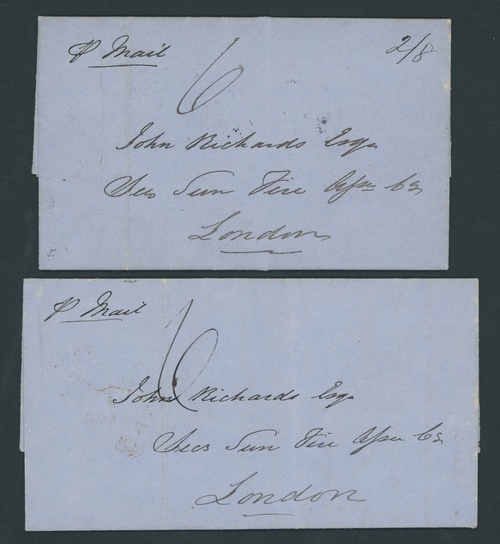 p Mail
2/8
6
John Richards Esq
Secs Sun Fire Assce Co
London
p Mail
6
John Richards Esq
Secs Sun Fire Assce Co
London